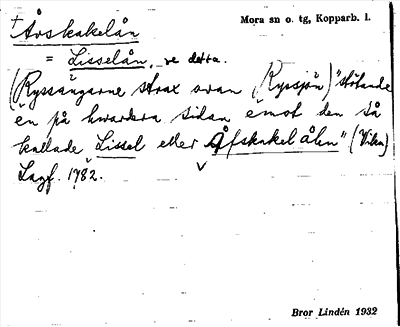 † Årskakelån
Mora sn o. tg, Kopparb. l.
= Lisselån, se detta.
(Ryssängarne strax ovan (Ryssjön) "stötande
en på hwardera sidan emot den så
kallade Lissel eller Åfskakel ålen" (Viken)
Lagf. 1782.
Bror Lindén 1932